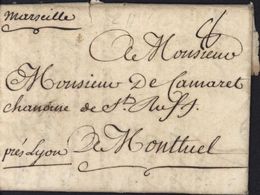 Marseille
8
A Monsieur
Monsieur De Camaret
chanoine de St Ruff.
près Lyon
A Montluel